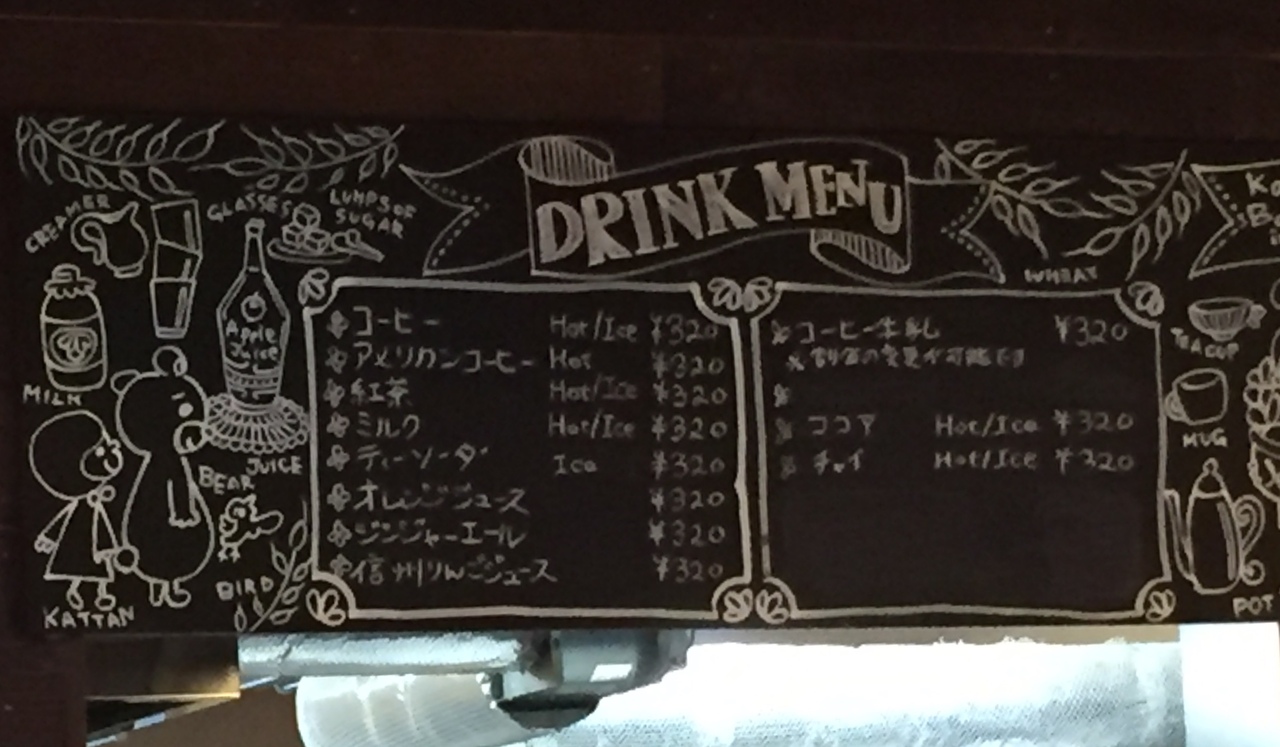 DRINK MENU
CREAMER
GLASSES
LUMPS OF SUGAR
MILK
Apple Juice
JUICE
BEAR
BIRD
KATTAN
コーヒー Hot/Ice ¥320
アメリカンコーヒー Hot ¥320
紅茶 Hot/Ice ¥320
ミルク Hot/Ice ¥320
ティーソーダ Ice ¥320
オレンジジュース ¥320
ジンジャーエール ¥320
信州りんごジュース ¥320
コーヒー牛乳 ¥320
※割合の変更が可能です
ココア Hot/Ice ¥320
チャイ Hot/Ice ¥320
WHEAT
TEA CUP
MUG
POT